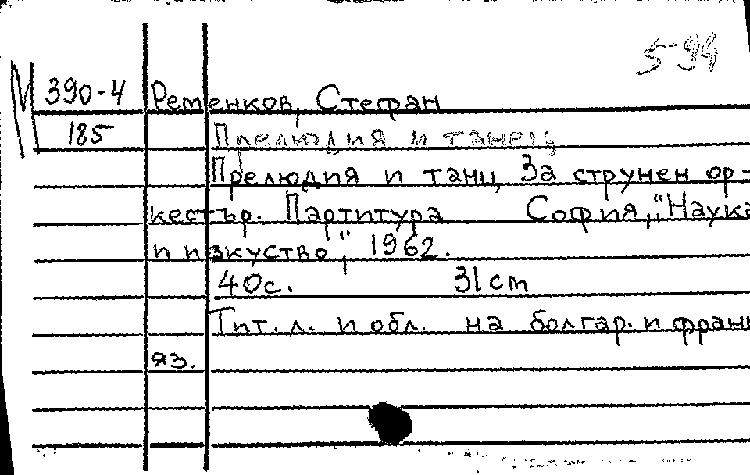 5-94
М 390-4 Ременков, Стефан
185 Прелюдия и танец,
Прелюдия и танц, За струнен ор-
кестър. Партитура София, "Наука
и изкуство", 1962.
40с. 31 cm
Тит. л. и обл. на болгар. и франц
яз.